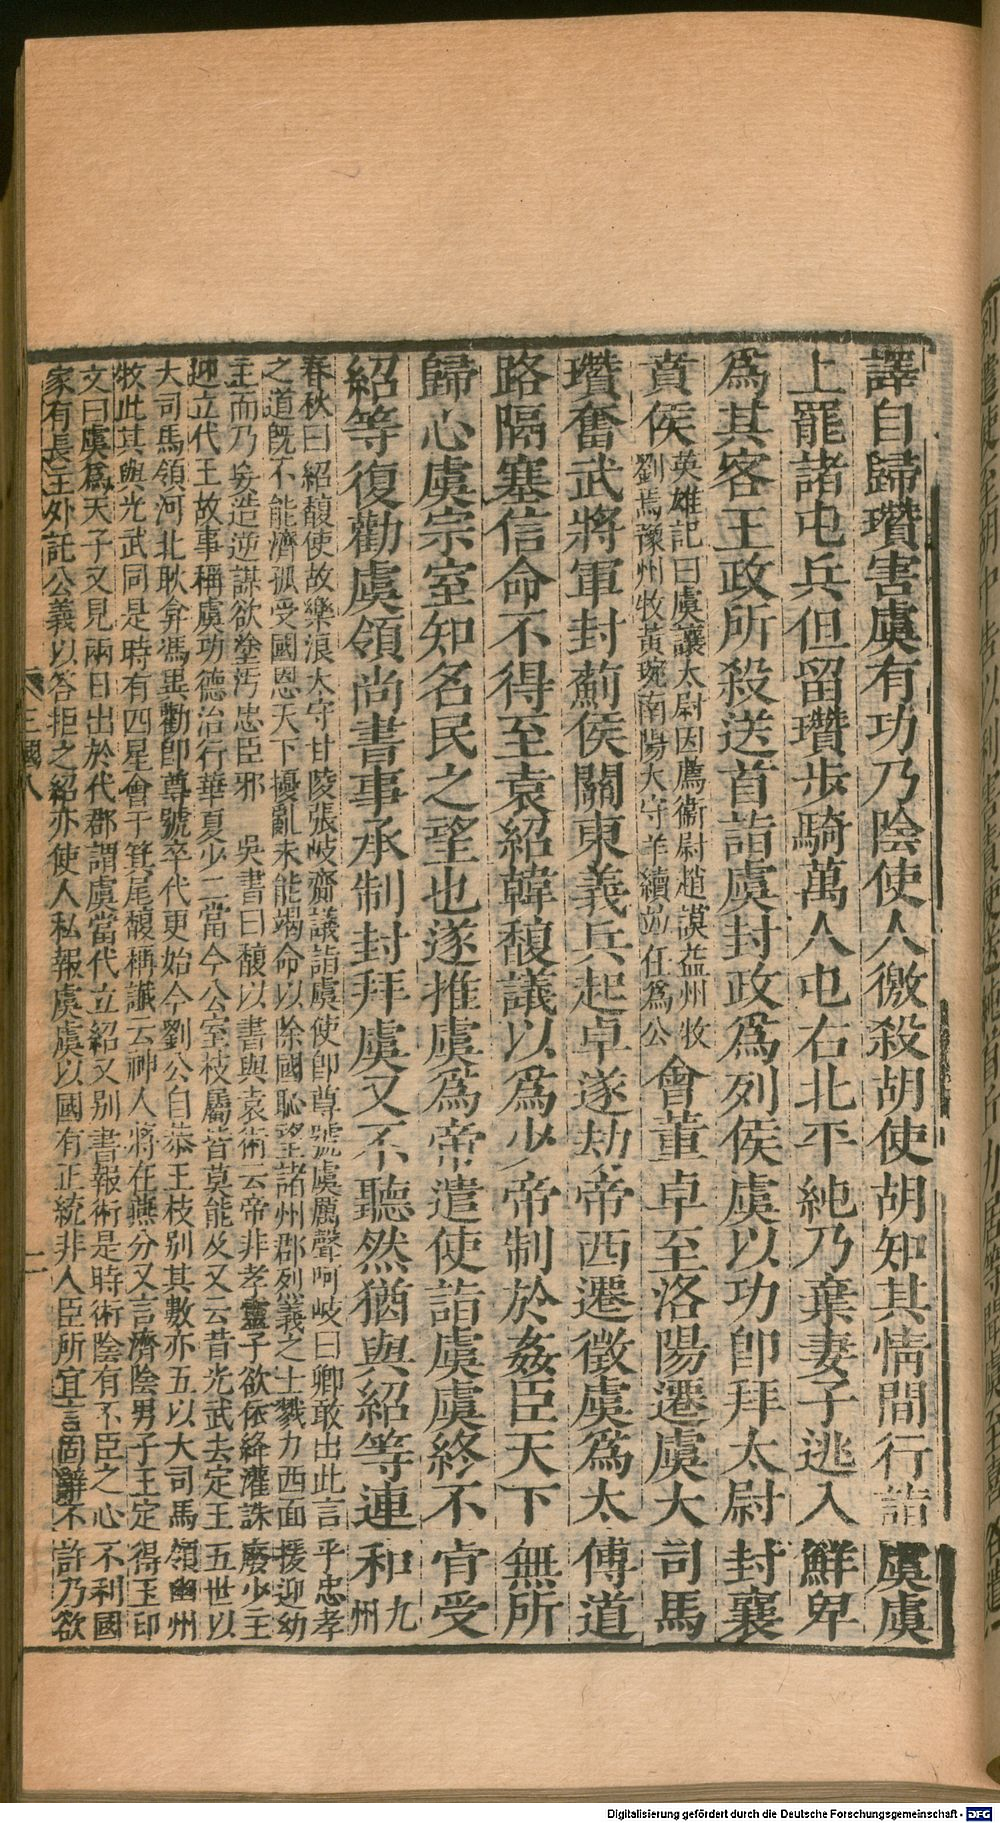 譯自歸瓚害虞有功乃陰使人徼殺胡使胡知其情間行詣虞虞
上罷諸屯兵但留瓚步騎萬人屯右北平純乃棄妻子逃入鮮卑
爲其客王政所殺送首詣虞封政爲列侯虞以功卽拜太尉封襄
賁侯
英雄記曰虞讓太尉因薦衞尉趙謨益州牧
劉焉豫州牧黃琬南陽太守羊續並任爲公
會董卓至洛陽遷虞大司馬
瓚奮武將軍封薊侯關東義兵起卓遂劫帝西遷徵虞爲太傅道
路隔塞信命不得至袁紹韓馥議以爲少帝制於姦臣天下無所
歸心虞宗室知名民之望也遂推虞爲帝遣使詣虞虞終不肯受
紹等復勸虞領尚書事承制封拜虞又不聽然猶與紹等連和
九
州
春秋曰紹馥使故樂浪太守甘陵張岐齎議詣虞使卽尊號虞厲聲呵岐曰卿敢出此言乎忠孝
之道旣不能濟孤受國恩天下擾亂未能竭命以除國恥望諸州郡烈義之士戮力西面援迎幼
主而乃妄造逆謀欲塗汚忠臣邪 吳書曰馥以書與袁術云帝非孝靈子欲依絳灌誅廢少主
迎立代王故事稱虞功德治行華夏少二當今公室枝屬皆莫能及又云昔光武去定王五世以
大司馬領河北耿弇馮異勸卽尊號卒代更始今劉公自恭王枝别其數亦五以大司馬領幽州
牧此其與光武同是時有四星會于箕尾馥稱讖云神人將在燕分又言濟陰男子王定得玉印
文曰虞爲天子又見兩日出於代郡謂虞當代立紹又别書報術是時術陰有不臣之心不利國
家有長主外託公義以答拒之紹亦使人私報虞虞以國有正統非人臣所宜言固辭不許乃欲
三國八
Digitalisierung gefördert durch die Deutsche Forschungsgemeinschaft - DFG